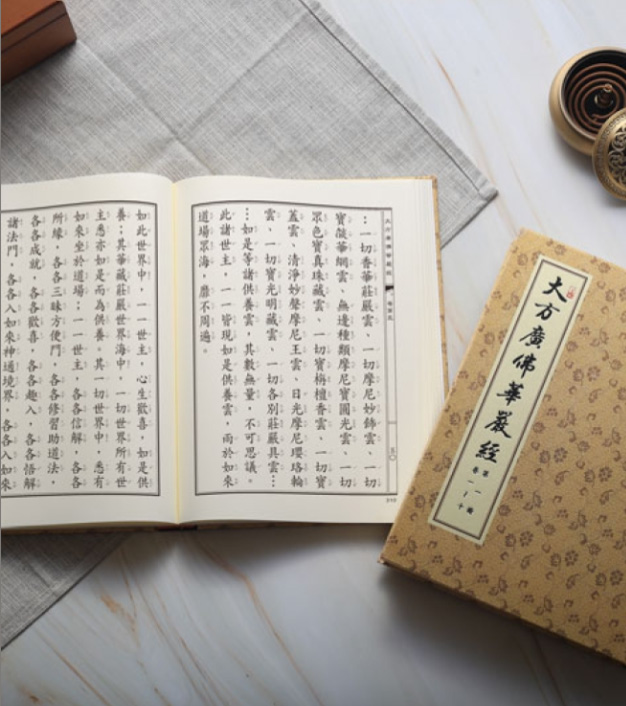 …一切香華莊嚴雲、一切摩尼妙飾雲、一切
寶燄華網雲、無邊種類摩尼寶圓光雲、一切
眾色寶真珠藏雲、一切寶栴檀香雲、一切寶
蓋雲、清淨妙聲摩尼王雲、日光摩尼瓔珞輪
雲、一切寶光明藏雲、一切各別莊嚴具雲…
…如是等諸供養雲,其數無量,不可思議。
此諸世主,一一皆現如是供養雲,雨於如來
道場眾海,靡不周遍。
如此世界中,一一世主,心生歡喜,如是供
養;其華藏莊嚴世界海中,一切世界所有世
主悉亦如是而為供養。其一切世界中,悉有
如來坐於道場;一一世主,各各信解,各各
所緣,各各三昧方便門,各各修習助道法,
各各成就,各各歡喜,各各趣入,各各悟解
諸法門,各各入如來神通境界,各各入如來
大方廣佛華嚴經
第一冊
卷一~十